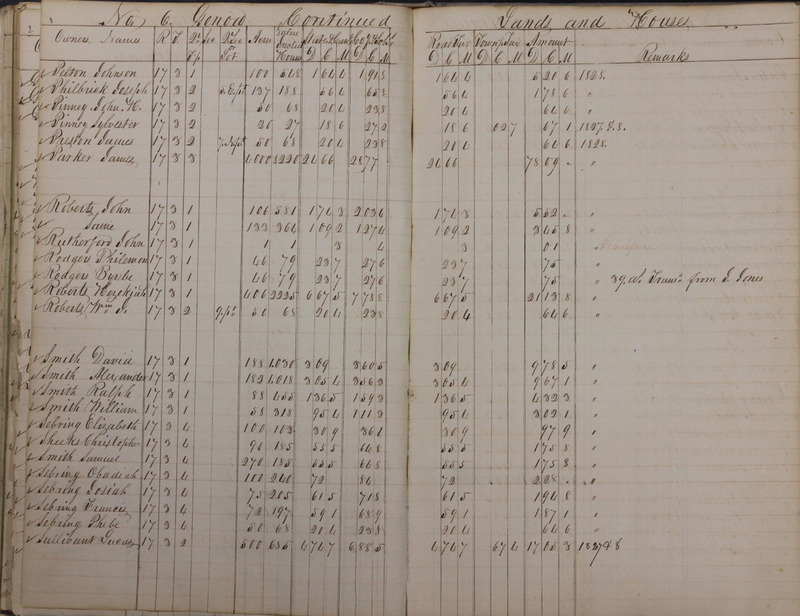 No. 6. Genoa Continued Lands and Houses
Owners Names R T. Acres Value Houses Road Tax Town Tax Amount Remarks
D C M D C M D C M D C M D C M
Pelton Johnson 17 3 1 100 548 164 4 191 8 164 4 520 6 1828.
Philbrick Joseph 17 3 2 S.E.pt 137 188 56 4 65 8 56 4 178 6 "
Pinney John H. 17 3 2 50 68 20 4 23 8 20 4 64 6 "
Pinney Sylvester 17 3 2 20 27 18 6 27 2 18 6 02 7 67 1 1827.8.
Preston James 17 3 2 50 68 20 4 23 8 20 4 64 6 1828.
Parker James 17 3 3 4000 8220 2466 2877 2466 7809 "
Roberts John 17 3 1 106 581 174 3 203 4 174 3 552 "
Same 17 3 1 133 364 109 2 127 4 109 2 345 8 "
Rutherford John 17 3 1 1 1 3 4 3 01 "
Rodgers Philemon 17 3 1 46 79 23 7 27 6 23 7 75 "
Rodgers 17 3 1 46 79 23 7 27 6 23 7 75 " 39. a. Trans. from S. Jones
Roberts Hezekiah 17 3 1 406 2225 667 5 778 8 667 5 2113 8 "
Roberts Wm. 17 3 2 50 68 20 4 23 8 20 4 64 6 "
Smith David 17 3 1 188 1030 309 360 5 309 978 5 "
Smith Alexander 17 3 1 182 1018 305 4 356 3 305 4 967 1 "
Smith Ralph 17 3 1 88 455 136 5 159 3 136 5 432 3 "
Smith William 17 3 1 58 318 95 4 111 3 95 4 302 1 "
Sebring Elizabeth 17 3 4 100 103 30 9 36 1 30 9 97 9 "
Sheets Christopher 17 3 4 90 185 55 5 64 8 55 5 175 8 "
Smith Samuel 17 3 4 270 185 55 5 64 8 55 5 175 8 "
Sebring Obadiah 17 3 4 100 240 72 84 72 228 "
Sebring Josiah 17 3 4 75 205 61 5 71 8 61 5 194 8 "
Sebring Francis 17 3 4 72 197 59 1 68 9 59 1 187 1 "
Sebring Phebe 17 3 4 50 68 20 4 23 8 20 4 64 6 "
Sullivant Lucas 17 3 2 500 685 474 7 688 5 474 7 67 4 1705 3 1827 & 8